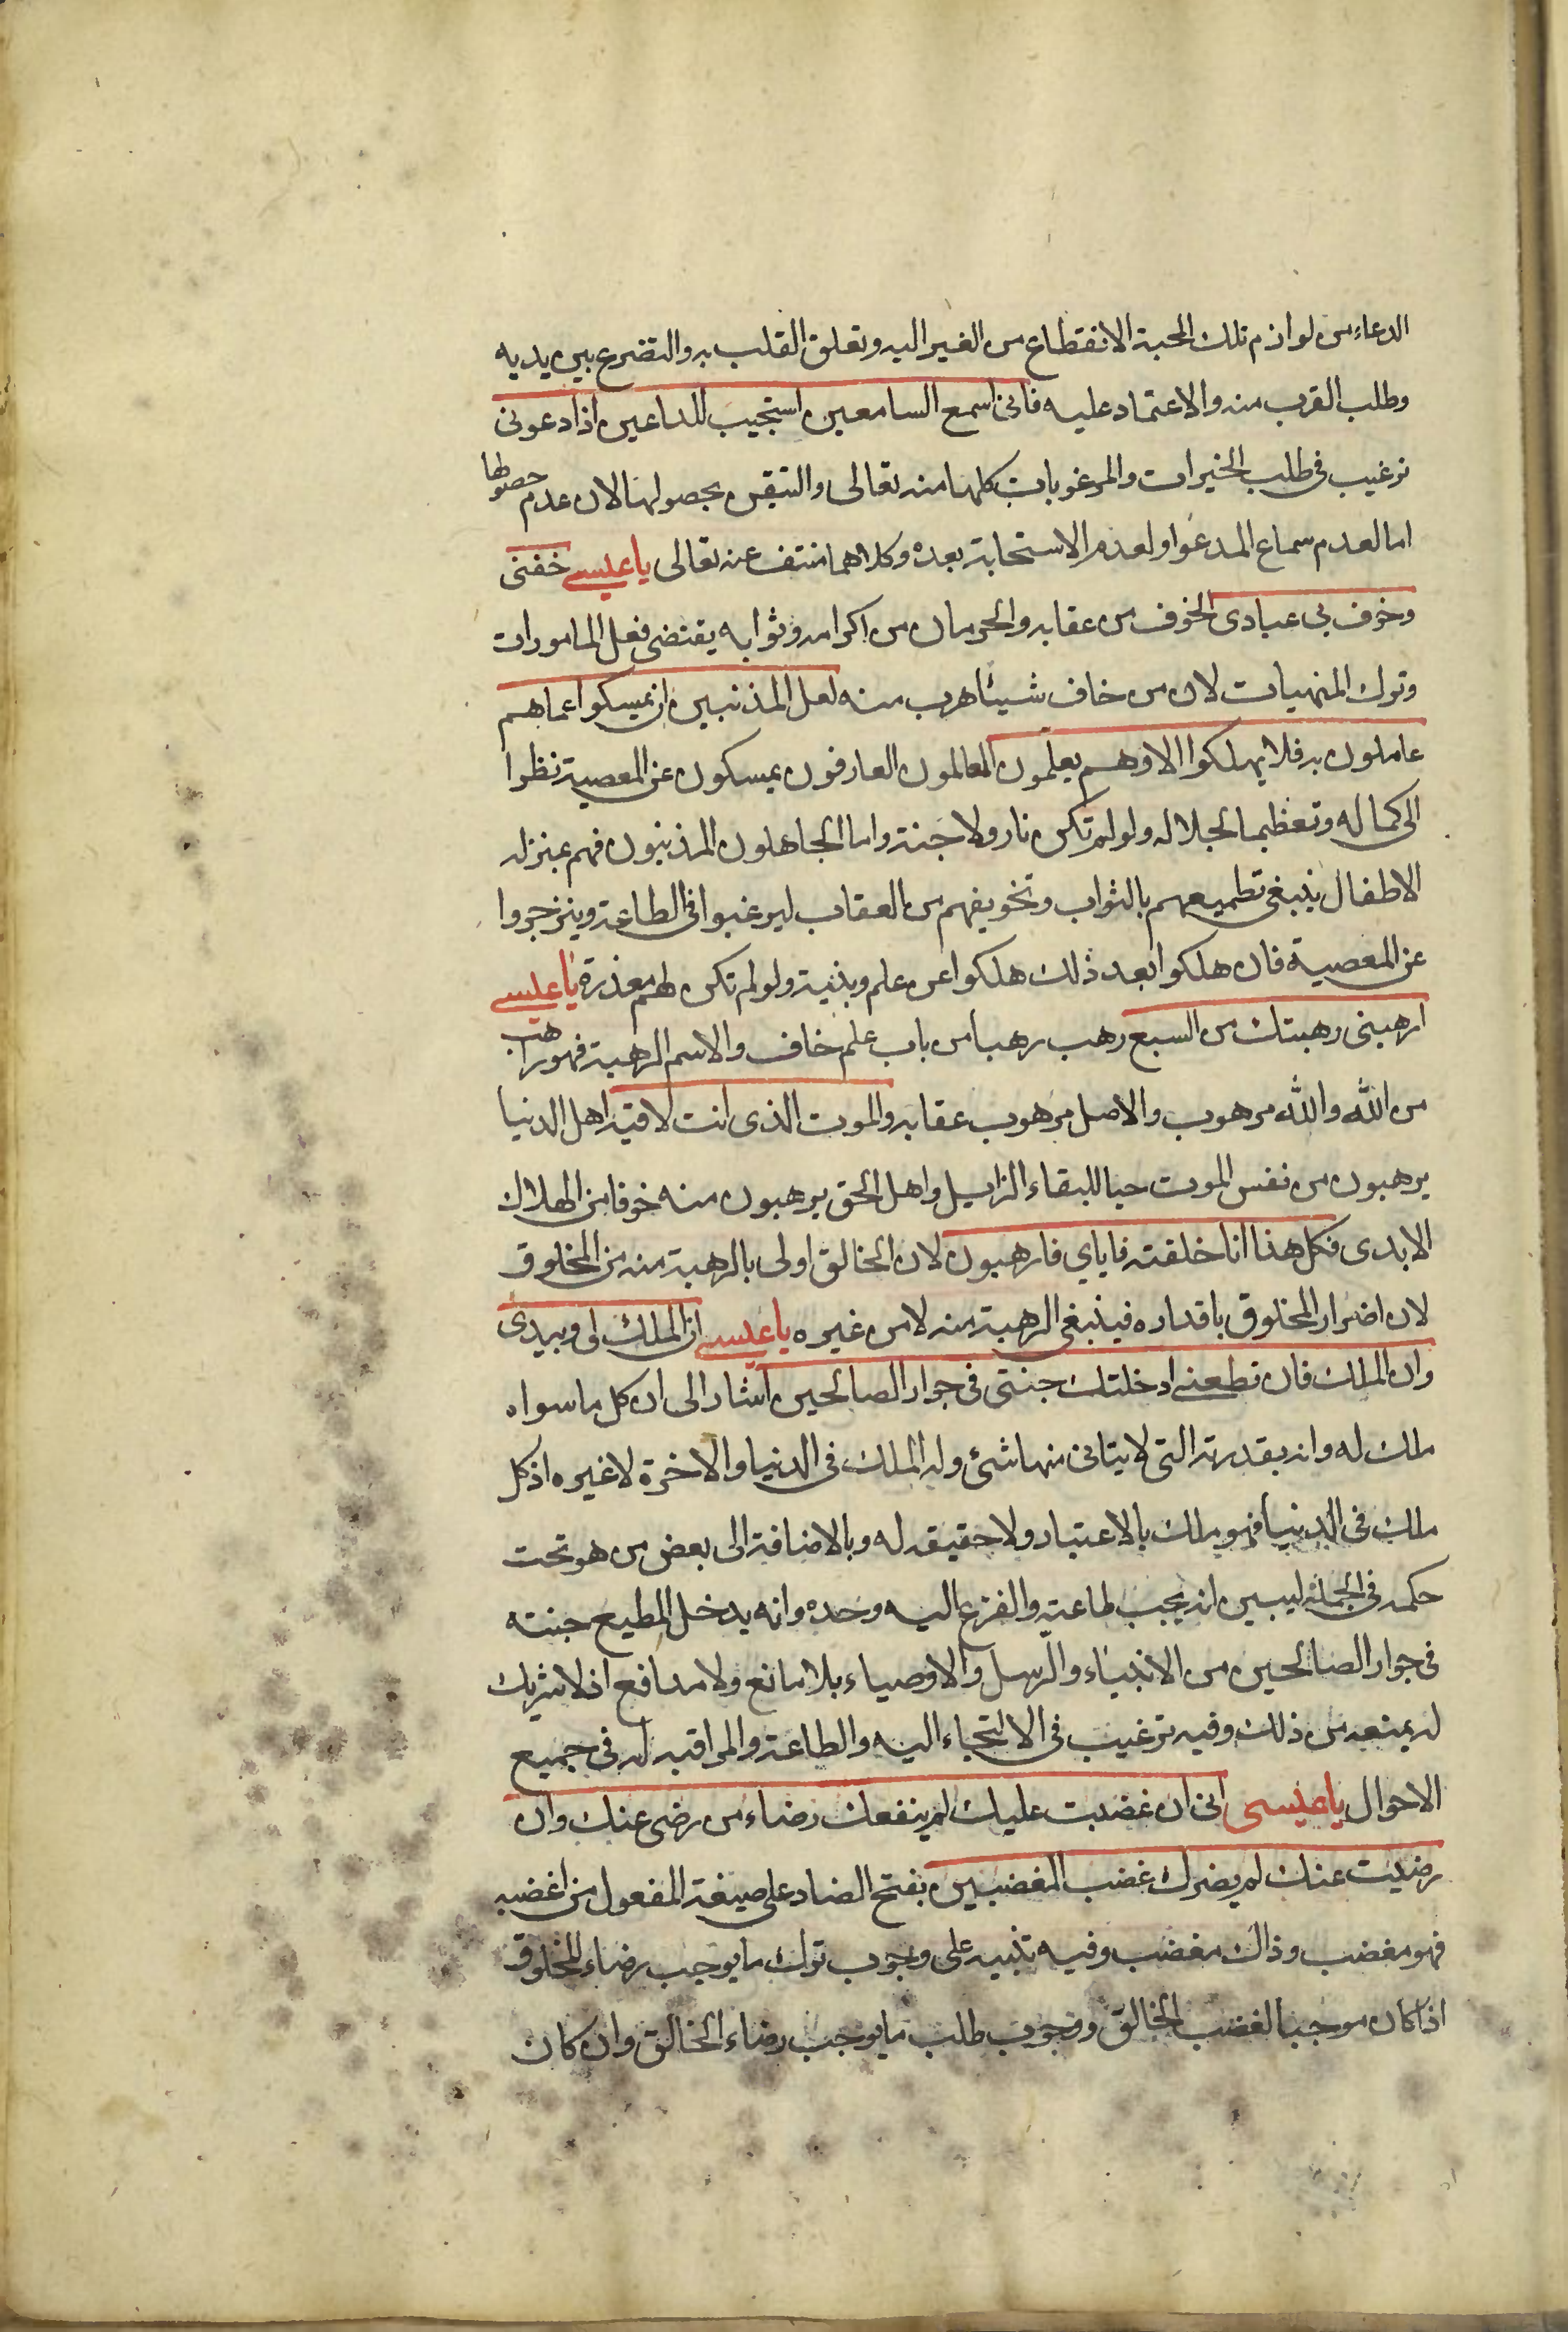 الدعاء من لوازم تلك المحبة الانقطاع من الغير اليه وتعلق القلب به والتضرع بين يديه
وطلب القرب منه والاعتماد عليه فانى اسمع السامعين استجيب للداعين اذا دعونى
ترغيب فى طلب الخيرات والمرغوبات كلها منه تعالى والتيقن بحصولها لان عدم حصولها
اما لعدم سماع المدعو او لعدم الاستجابة بعده وكلاهما منتف عنه تعالى يا عيسى خفنى
وخوف بى عبادى الخوف من عقابه والحرمان من اكرامه وثوابه يقتضى فعل المامورات
وترك المنهيات لان من خاف شيئا هرب منه لعل المذنبين ان يمسكوا عما هم
عاملون به فلا يهلكوا الا وهم يعلمون العالمون العارفون يمسكون عن المعصية نظرا
الى كماله وتعظيما لجلاله ولو لم تكن نار ولا جنة واما الجاهلون المذنبون فهم بمنزلة
الاطفال ينبغى تطميعهم بالثواب وتخويفهم من العقاب ليرغبوا فى الطاعة وينزجروا
عن المعصية فان هلكوا بعد ذلك هلكوا عن علم وبنية ولو لم تكن لهم معذرة يا عيسى
ارهبنى رهبتك من السبع رهب رهبا من باب علم خاف والاسم الرهبة فهو راهب
من الله والله مرهوب والاصل مرهوب عقابه والموت الذى انت لاقيه اهل الدنيا
يرهبون من نفس الموت حبا للبقاء الزايل واهل الحق يرهبون منه خوفا من الهلاك
الابدى فكل هذا انا خلقته فاياي فارهبون لان الخالق اولى بالرهبة منه من المخلوق
لان اضرار المخلوق باقداره فينبغى الرهبة منه لا من غيره يا عيسى ان الملك لى وبيدى
وان الملك فان تطعنى ادخلتك جنتى فى جوار الصالحين اشار الى ان كل ما سواه
ملك له وانه بقدرته التى لا يتانى منها شئ وله الملك فى الدنيا والاخرة لا غيره اذ كل
ملك فى الدنيا فهو ملك بالاعتبار ولا حقيقة له وبالاضافة الى بعض من هو تحت
حكمه فى الجملة ليبين انه يجب طاعته والفزع اليه وحده وانه يدخل المطيع جنته
فى جوار الصالحين من الانبياء والرسل والاوصياء بلا مانع ولا مدافع اذ لا شريك
له يمنعه من ذلك وفيه ترغيب فى الالتجاء اليه والطاعة والمراقبة له فى جميع
الاحوال يا عيسى انى ان غضبت عليك لم ينفعك رضاء من رضى عنك وان
رضيت عنك لم يضرك غضب المغضبين بفتح الضاد على صيغة المفعول من اغضبه
فهو مغضب وذاك مغضب وفيه تنبيه على وجوب ترك ما يوجب رضاء المخلوق
اذا كان موجبا لغضب الخالق ووجوب طلب ما يوجب رضاء الخالق وان كان